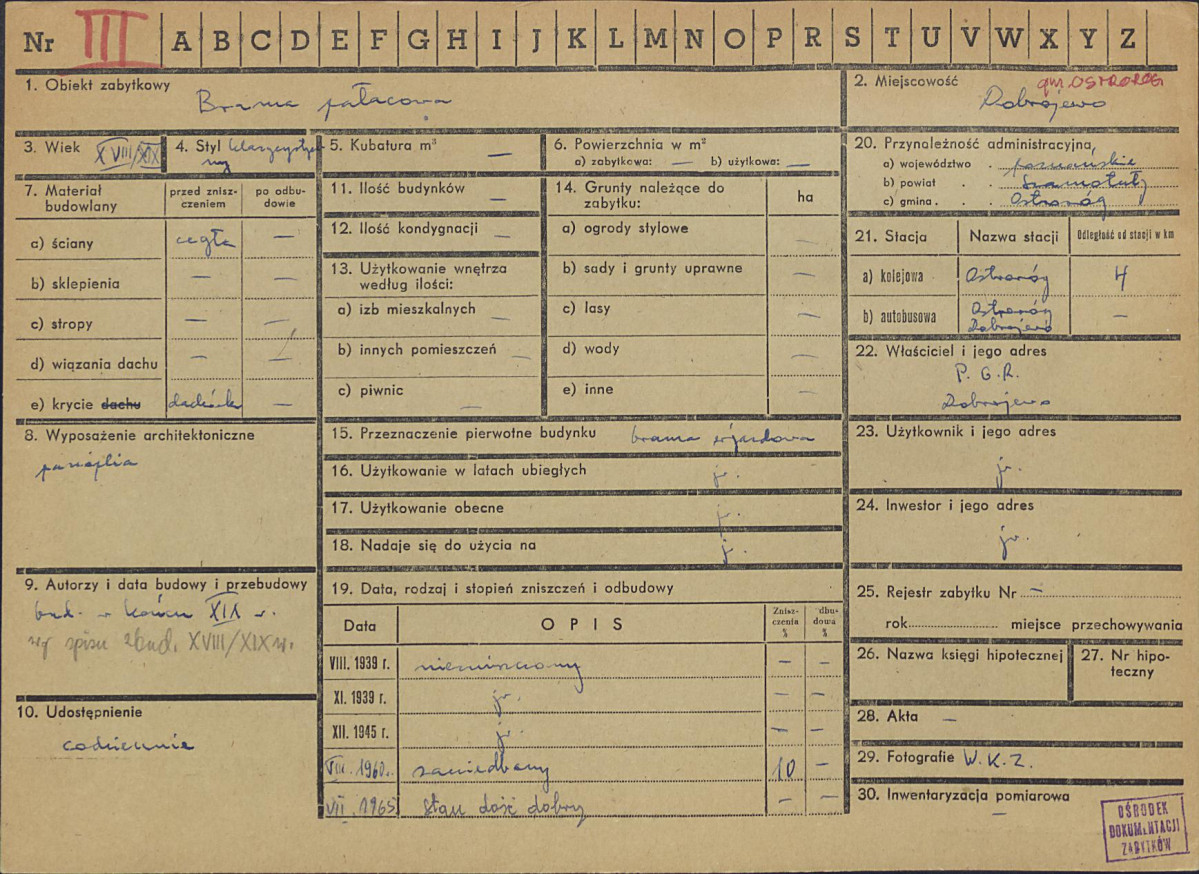 Nr III A B C D E F G H I J K L M N O P R S T U V W X Y Z
1. Obiekt zabytkowy
Brama pałacowa
2. Miejscowość gm. OSTRORÓG
Dobrojewo
3. Wiek XVIII/XIX
4. Styl klasycystycz
ny
5. Kubatura m³ —
6. Powierzchnia w m²
a) zabytkowa: — b) użytkowa: —
7. Materiał
budowlany
przed znisz-
czeniem
po odbu-
dowie
a) ściany cegła —
b) sklepienia —
c) stropy — —
d) wiązania dachu — —
e) krycie dachu dachówka —
8. Wyposażenie architektoniczne
panoplia
9. Autorzy i data budowy i przebudowy
bud. w końcu XIX w.
wg spisu zbud. XVIII/XIX w.
10. Udostępnienie
codziennie
11. Ilość budynków —
12. Ilość kondygnacji —
13. Użytkowanie wnętrza
według ilości:
a) izb mieszkalnych —
b) innych pomieszczeń —
c) piwnic —
14. Grunty należące do
zabytku:
ha
a) ogrody stylowe —
b) sady i grunty uprawne —
c) lasy —
d) wody —
e) inne —
15. Przeznaczenie pierwotne budynku brama wjazdowa
16. Użytkowanie w latach ubiegłych j.
17. Użytkowanie obecne j.
18. Nadaje się do użycia na j.
19. Data, rodzaj i stopień zniszczeń i odbudowy
Data OPIS
Znisz-
czenia
%
Odbu-
dowa
%
VIII. 1939 r. niezniszczony — —
XI. 1939 r. jw. — —
XII. 1945 r. jw. — —
VIII. 1960. zaniedbany 10 —
VII. 1965 Stan dość dobry — —
20. Przynależność administracyjna
a) województwo . poznańskie
b) powiat . . Szamotuły
c) gmina . . . Ostroróg
21. Stacja Nazwa stacji Odległość od stacji w km
a) kolejowa Ostroróg 4
b) autobusowa Ostroróg
Dobrojewo —
22. Właściciel i jego adres
P. G. R.
Dobrojewo
23. Użytkownik i jego adres
jw.
24. Inwestor i jego adres
jw.
25. Rejestr zabytku Nr —
rok miejsce przechowywania
26. Nazwa księgi hipotecznej
27. Nr hipo-
teczny
28. Akta —
29. Fotografie W. K. Z.
30. Inwentaryzacja pomiarowa
—
OŚRODEK
DOKUMENTACJI
ZABYTKÓW